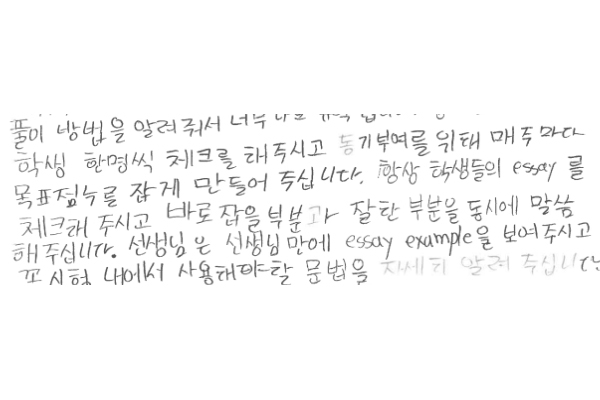 풀이 방법을 알려줘서 너무
학생 한명씩 체크를 해주시고 동기부여를 위해 매주마다
목표점수를 잡게 만들어 주십니다. 항상 학생들의 essay 를
체크해 주시고 바로 잡을 부분과 잘한 부분을 동시에 말씀
해주십니다. 선생님은 선생님만에 essay example을 보여주시고
꼬 시험 내에서 사용해야할 문법을 자세히 알려 주십니다